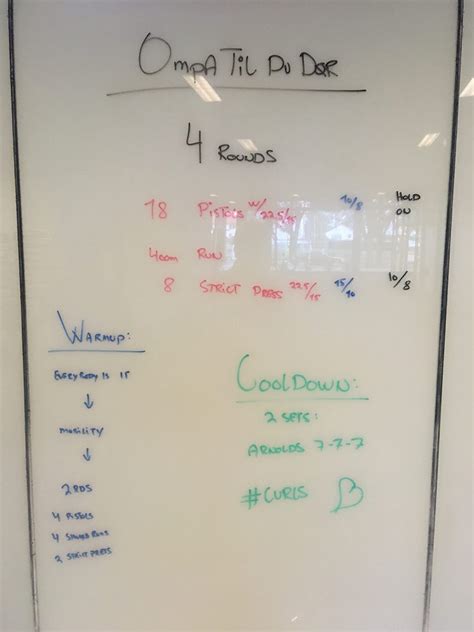 OmpA Til Du Dør
4 Rounds
18 Pistols w/22.5/15 10/8 Hold on
400m Run
8 Strict Press 22.5/15 15/10 10/8
Warmup:
Everybody is it
mobility
2 RDS
4 Pistols
4
2 Strict Press
CoolDown:
2 sets:
Arnolds 7-7-7
#Curls